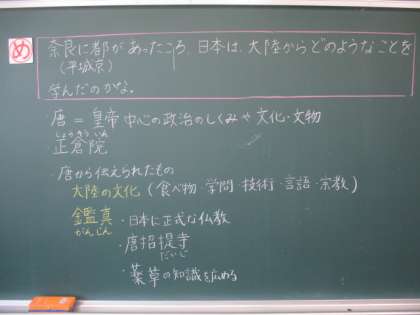 め
奈良に都があったころ、日本は、大陸からどのようなことを
(平城京)
学んだのかな。
・唐=皇帝中心の政治のしくみや文化・文物
しょうそういん
正倉院
・唐から伝えられたもの
大陸の文化(食べ物・学問・技術・言語・宗教)
鑑真・日本に正式な仏教
がんじん
・唐招提寺
だいじ
・薬草の知識を広める